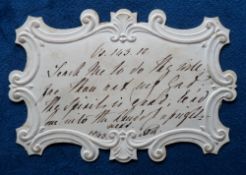 Ps. 143. 10
Teach me to do Thy will
for Thou art my God:
Thy Spirit is good, lead
me into the land of upright-
ness.